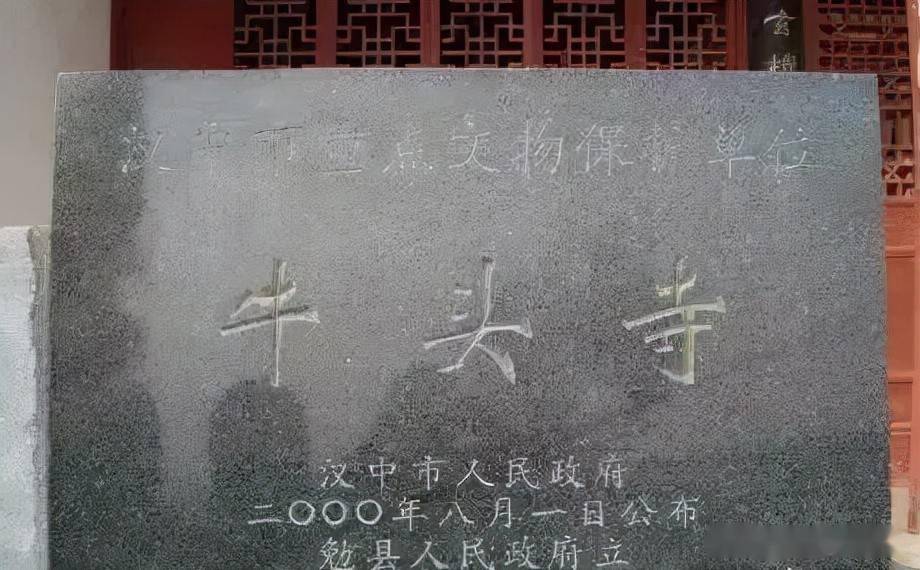 玄
汉中市重点文物保护单位
牛头寺
汉中市人民政府
二〇〇〇年八月一日公布
勉县人民政府立